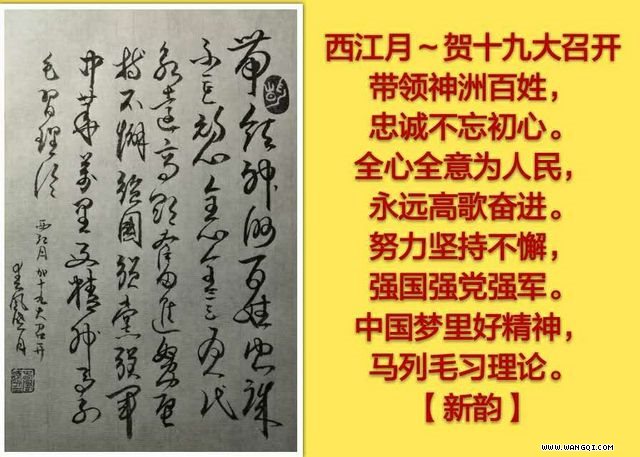 带领神洲百姓忠诚
不忘初心全心全意为人民
永远高歌奋进努力坚
持不懈强國强黨强军
中里好精神马列
毛习理论
西江月 贺十九大召开
西江月~贺十九大召开
带领神洲百姓，
忠诚不忘初心。
全心全意为人民，
永远高歌奋进。
努力坚持不懈，
强国强党强军。
中国梦里好精神，
马列毛习理论。
【新韵】
WWW.WANGQI.COM